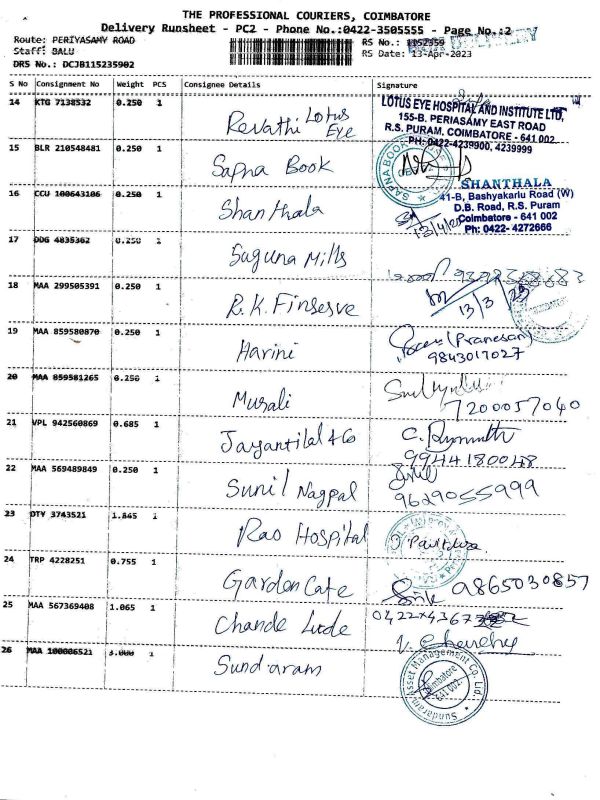 THE PROFESSIONAL COURIERS, COIMBATORE
Delivery Runsheet - PC2 - Phone No.:0422-3505555 - Page No.:2
Route: PERIYASAMY ROAD
RS No.: 1152359
Staff: BALU
RS Date: 13-Apr-2023
DRS No.: DCJB115235902
S No Consignment No Weight PCS Consignee Details Signature
14 KTG 7138532 0.250 1 Revathi Lotus Eye
LOTUS EYE HOSPITAL AND INSTITUTE LTD,
155-B. PERIASAMY EAST ROAD
R.S. PURAM, COIMBATORE - 641 002
PH: 0422-4239900, 4239999
15 BLR 210548481 0.250 1 Sapna Book
SAPNA BOOK
16 CCU 100643106 0.250 1 Shanthala
SHANTHALA
41-B, Bashyakarlu Road (W)
D.B. Road, R.S. Puram
Coimbatore - 641 002
Ph: 0422- 4272666
17 DDG 4835362 0.250 1 Suguna Mills
18 MAA 299505391 0.250 1 R.K. Finserve
13/3/23
19 MAA 859580870 0.250 1 Harini
(Pranesan)
9843017027
20 MAA 859581265 0.250 1 Murali
7200057040
21 VPL 942560869 0.685 1 Jayantilal & Co
9944180048
22 MAA 569489849 0.250 1 Sunil Nagpal
9629055999
23 DTY 3743521 1.845 1 Rao Hospital
24 TRP 4228251 0.755 1 Garden Cafe
9865030857
25 MAA 567369408 1.065 1 Chande Lude
26 MAA 100006521 3.000 1 Sundaram
Sundaram Asset Management Co. Ltd.
Coimbatore
641 002